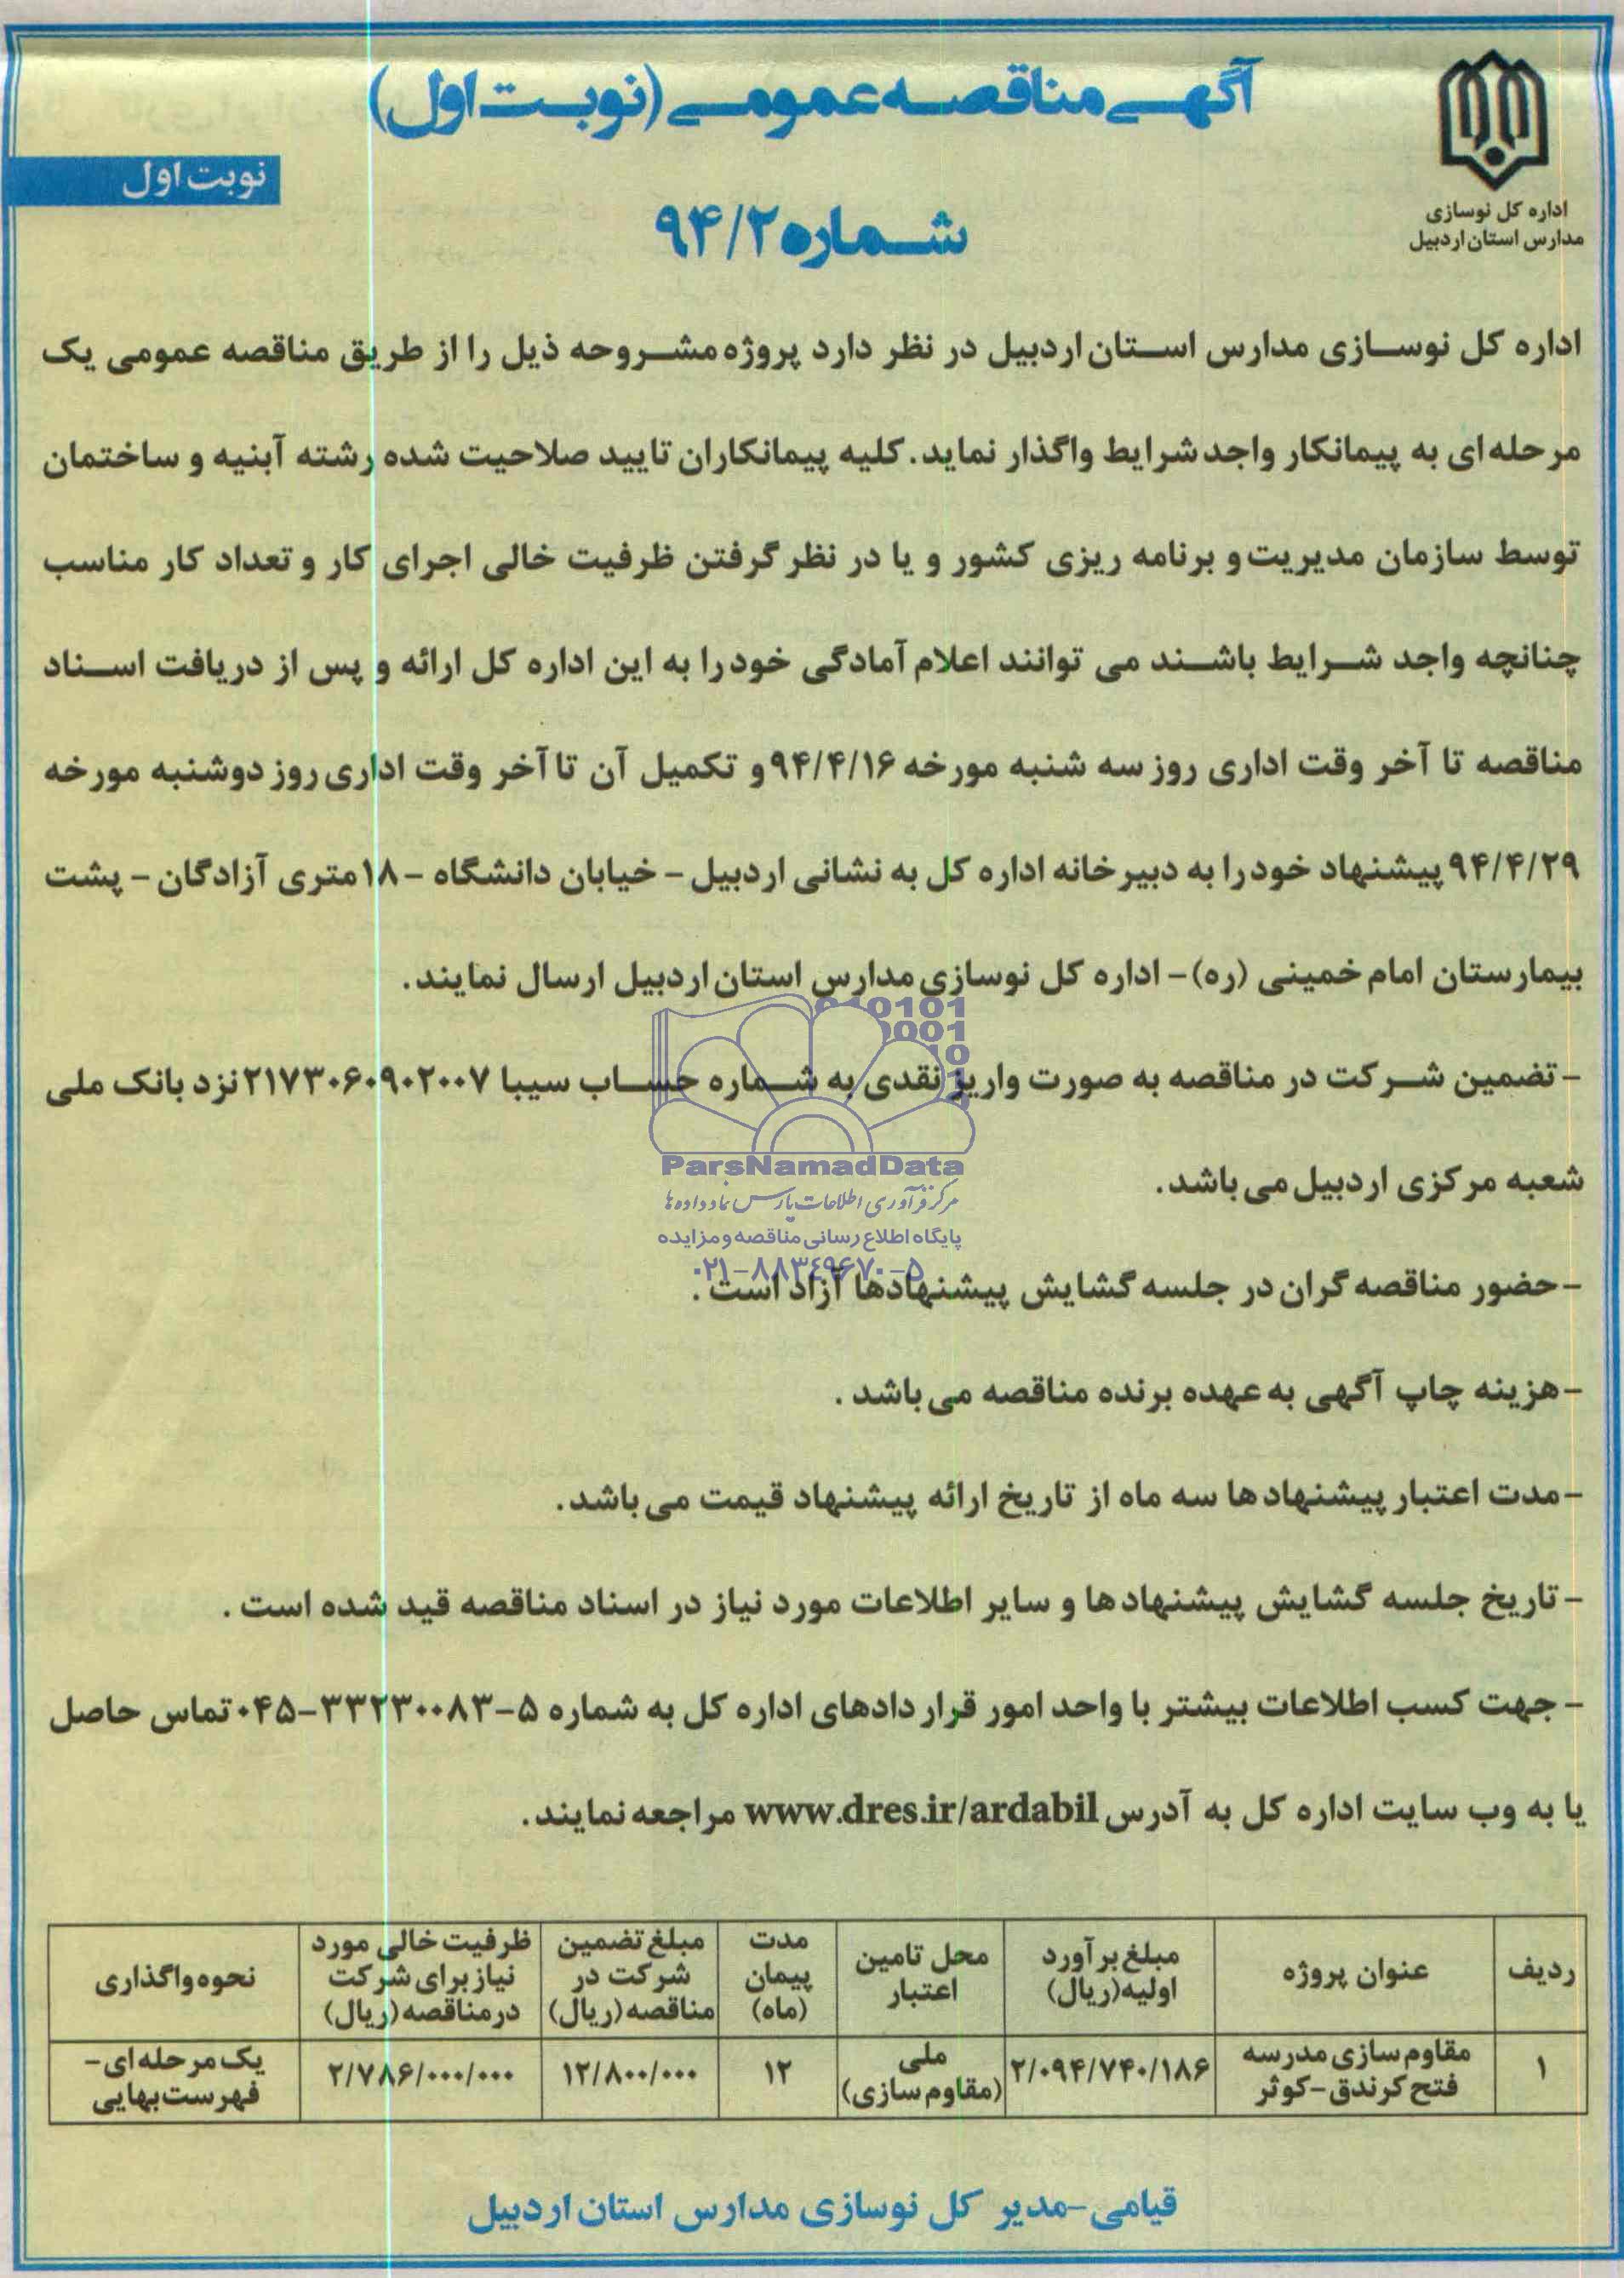 آگهی مناقصه عمومی (نوبت اول)
نوبت اول
شماره ۹۴/۲
اداره کل نوسازی
مدارس استان اردبیل
اداره کل نوسازی مدارس استان اردبیل در نظر دارد پروژه مشروحه ذیل را از طریق مناقصه عمومی یک
مرحله ای به پیمانکار واجد شرایط واگذار نماید. کلیه پیمانکاران تایید صلاحیت شده رشته آبنیه و ساختمان
توسط سازمان مدیریت و برنامه ریزی کشور و یا در نظر گرفتن ظرفیت خالی اجرای کار و تعداد کار مناسب
چنانچه واجد شرایط باشند می توانند اعلام آمادگی خود را به این اداره کل ارائه و پس از دریافت اسناد
مناقصه تا آخر وقت اداری روز سه شنبه مورخه ۹۴/۴/۱۶ و تکمیل آن تا آخر وقت اداری روز دوشنبه مورخه
۹۴/۴/۲۹ پیشنهاد خود را به دبیرخانه اداره کل به نشانی اردبیل - خیابان دانشگاه - ۱۸ متری آزادگان - پشت
بیمارستان امام خمینی (ره) - اداره کل نوسازی مدارس استان اردبیل ارسال نمایند.
- تضمین شرکت در مناقصه به صورت واریز نقدی به شماره حساب سیبا ۲۱۷۳۰۶۰۹۰۲۰۰۷ نزد بانک ملی
شعبه مرکزی اردبیل می باشد.
- حضور مناقصه گران در جلسه گشایش پیشنهادها آزاد است.
- هزینه چاپ آگهی به عهده برنده مناقصه می باشد.
- مدت اعتبار پیشنهادها سه ماه از تاریخ ارائه پیشنهاد قیمت می باشد.
- تاریخ جلسه گشایش پیشنهادها و سایر اطلاعات مورد نیاز در اسناد مناقصه قید شده است.
- جهت کسب اطلاعات بیشتر با واحد امور قراردادهای اداره کل به شماره ۵-۳۳۲۳۰۰۸۳-۰۴۵ تماس حاصل
یا به وب سایت اداره کل به آدرس www.dres.ir/ardabil مراجعه نمایند.
ParsNamadData
مرکز فرآوری اطلاعات پارس نماد داده ها
پایگاه اطلاع رسانی مناقصه و مزایده
۰۲۱-۸۸۳۴۹۶۷۰-۵
ردیف | عنوان پروژه | مبلغ برآورد اولیه (ریال) | محل تامین اعتبار | مدت پیمان (ماه) | مبلغ تضمین شرکت در مناقصه (ریال) | ظرفیت خالی مورد نیاز برای شرکت در مناقصه (ریال) | نحوه واگذاری
۱ | مقاوم سازی مدرسه فتح کرندق-کوثر | ۲/۰۹۴/۷۴۰/۱۸۶ | ملی (مقاوم سازی) | ۱۲ | ۱۲/۸۰۰/۰۰۰ | ۲/۷۸۶/۰۰۰/۰۰۰ | یک مرحله ای- فهرست بهایی
قیامی - مدیر کل نوسازی مدارس استان اردبیل